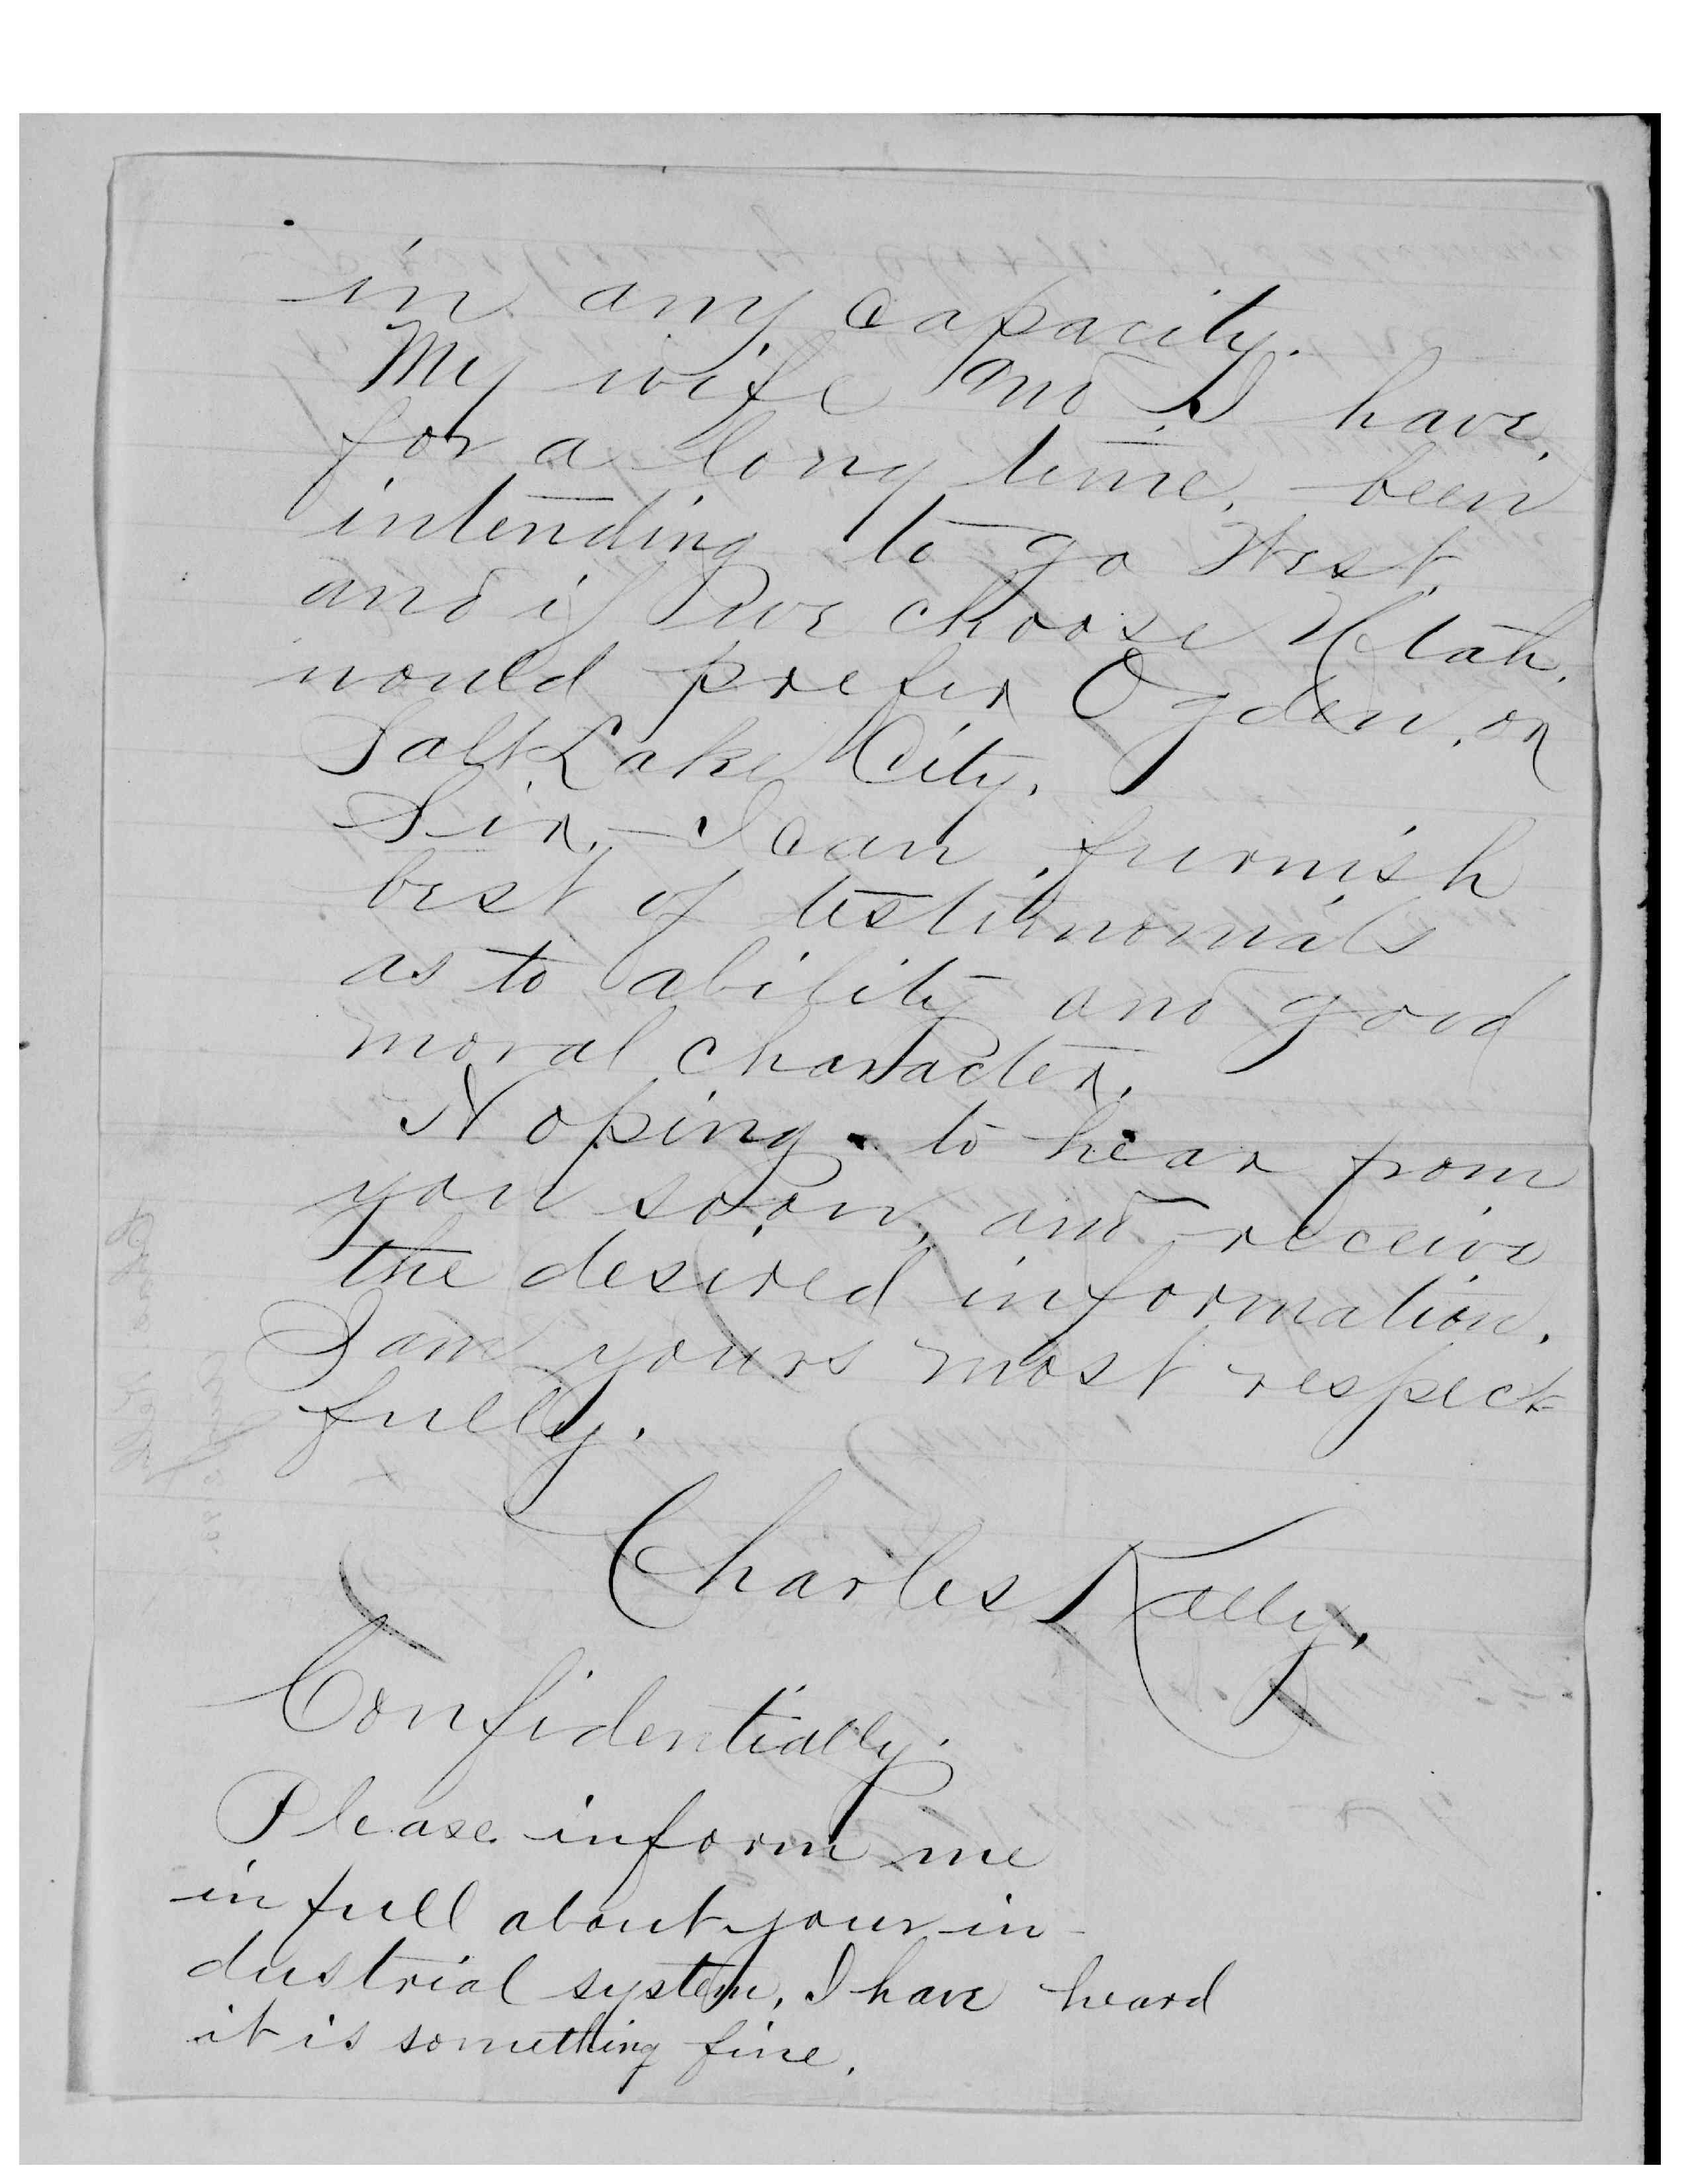 in any capacity.
My wife and I have,
for a long time, been
intending to go West,
and if we choose Utah,
would prefer Ogden, or
Salt Lake City.
Sir, I can furnish
best of testimonials
as to ability and good
moral character.
Hoping to hear from
you soon, and receive
the desired information.
I am yours most respect-
fully.
Charles Kelly.
Confidentially.
Please inform me
in full about your in-
dustrial system, I have heard
it is something fine.